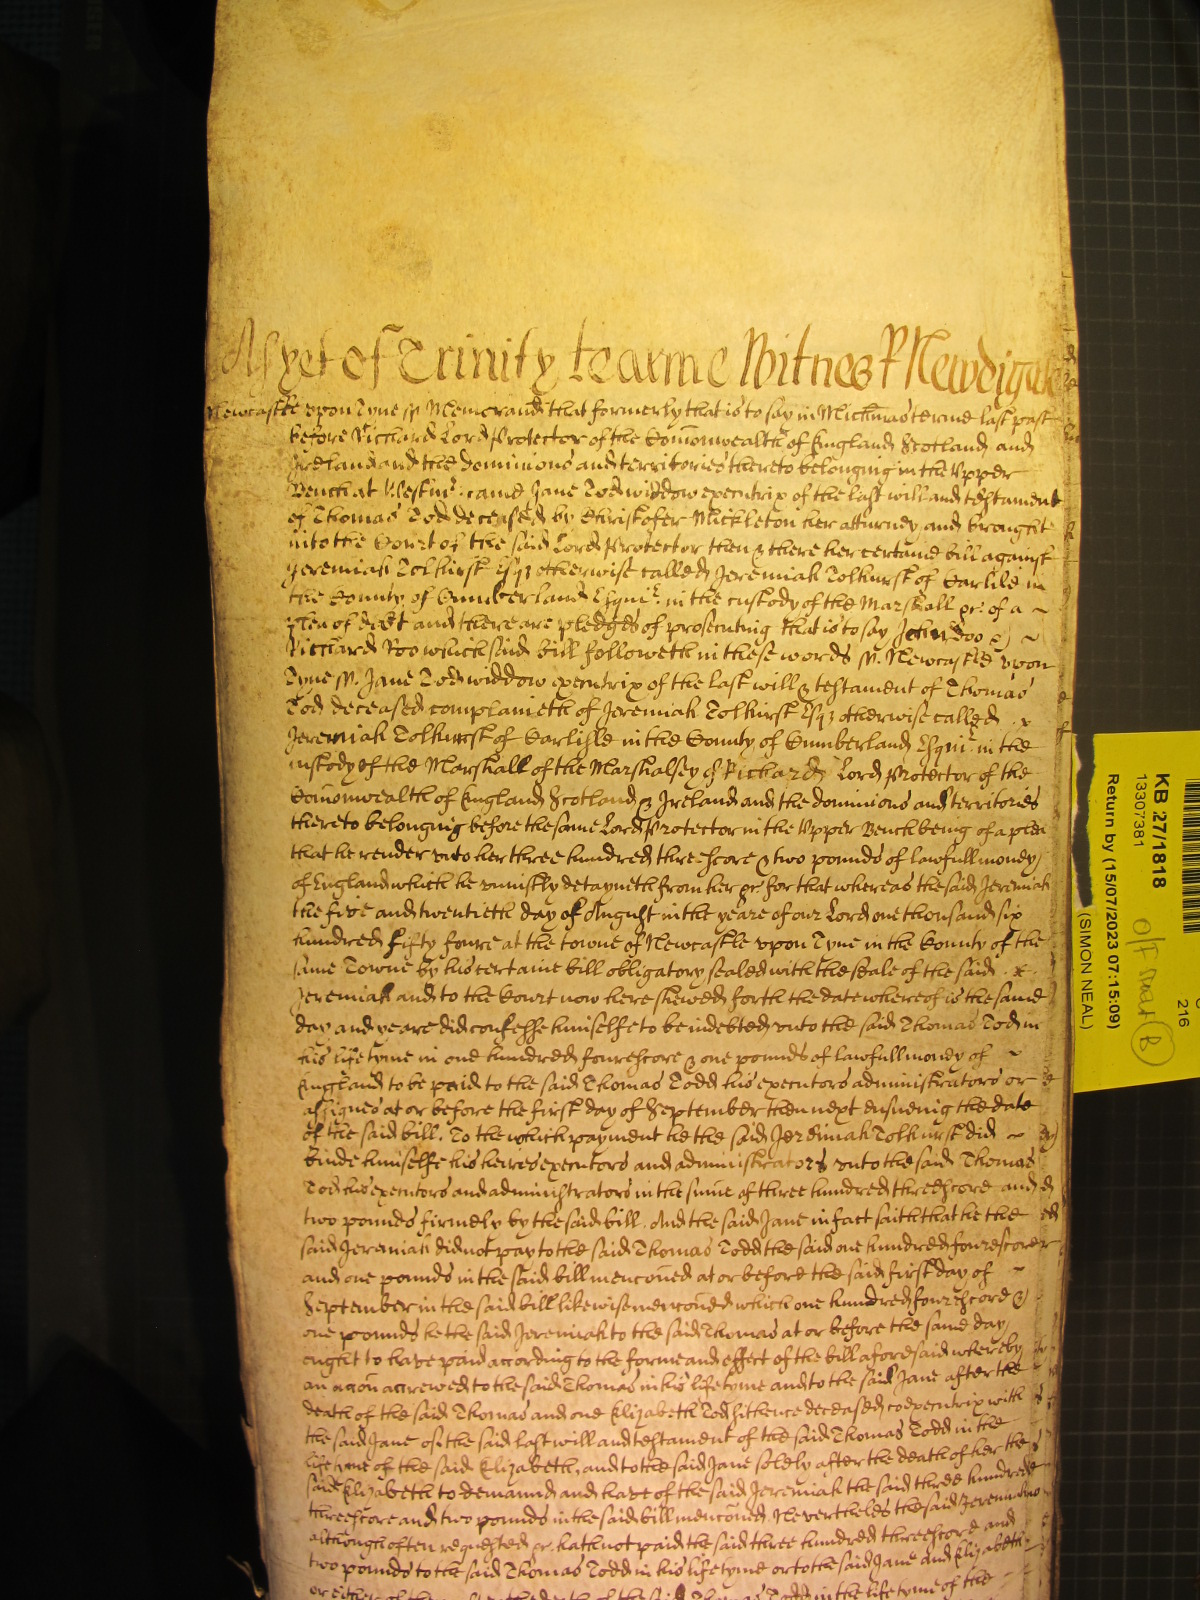 As yet of Trinity tearme Witnes R Newdigate
Newcastle upon Tyne ss Memorand that formerly that is to say in Michmas terme last past
before Richard Lord Protector of the Comonwealth of England Scotland and
Ireland and the dominions and territories thereto belonging in the Upper
Bench at Westmr: came Jane Tod widdow executrix of the last will and testament
of Thomas Tod deceased by Christofer Mickleton her atturney and brought
into the Court of the said Lord Protector then & there her certaine bill against
Jeremiah Tolhurst Esqr otherwise called Jeremiah Tolhurst of Carlile in
the County of Cumberland Esquir: in the custody of the Marshall &c: of a
plea of debt and there are pledges of prosecuting that is to say John Doo &
Richard Roo which said bill followeth in these words ss. Newcastle upon
Tyne ss. Jane Tod widdow executrix of the last will & testament of Thomas
Tod deceased complaineth of Jeremiah Tolhurst Esqr otherwise called
Jeremiah Tolhurst of Carlisle in the County of Cumberland Esquir: in the
custody of the Marshall of the Marshalsey of Richard Lord Protector of the
Comonwealth of England Scotland & Ireland and the dominions and territories
thereto belonging before the same Lord Protector in the Upper Bench being of a plea
that he render unto her three hundred threescore & two pounds of lawfull money
of England which he uniustly detayneth from her &c: for that whereas the said Jeremiah
the five and twentieth day of August in the yeare of our Lord one thousand six
hundred fifty foure at the towne of Newcastle upon Tyne in the County of the
same Towne by his certaine bill obligatory sealed with the seale of the said
Jeremiah and to the Court now here shewed forth the date whereof is the same
day and yeare did confesse himselfe to be indebted unto the said Thomas Tod in
his life tyme in one hundred fourescore & one pounds of lawfull money of
England to be paid to the said Thomas Todd his executors administrators or
assignes at or before the first day of September then next ensueing the date
of the said bill. To the which payment he the said Jeremiah Tolhurst did
binde himselfe his heires executors and administrators unto the said Thomas
Tod his executors and administrators in the sume of three hundred threescore and
two pounds firmely by the said bill. And the said Jane in fact saith that he the
said Jeremiah did not pay to the said Thomas Todd the said one hundred fourescore
and one pounds in the said bill menconed at or before the said first day of
September in the said bill likewise menconed which one hundred fourescore &
one pounds he the said Jeremiah to the said Thomas at or before the same day
ought to have paid according to the forme and effect of the bill aforesaid whereby
an accon accrewed to the said Thomas in his life tyme and to the said Jane after the
death of the said Thomas and one Elizabeth Tod sithence deceased coexecutrix with
the said Jane of the said last will and testament of the said Thomas Todd in the
life tyme of the said Elizabeth, and to the said Jane solely after the death of her the
said Elizabeth to demannd and have of the said Jeremiah the said three hundred
threescore and two pounds in the said bill menconed. Neverthelesse the said Jeremiah
although often requested &c. hath not paid the said three hundred threescore and
two pounds to the said Thomas Todd in his life tyme or to the said Jane and Elizabeth
or either of them after the death of the said Thomas Todd in the life tyme of the
KB 27/1818
13307381
Return by (15/07/2023 07:15:09)
(SIMON NEAL)
216